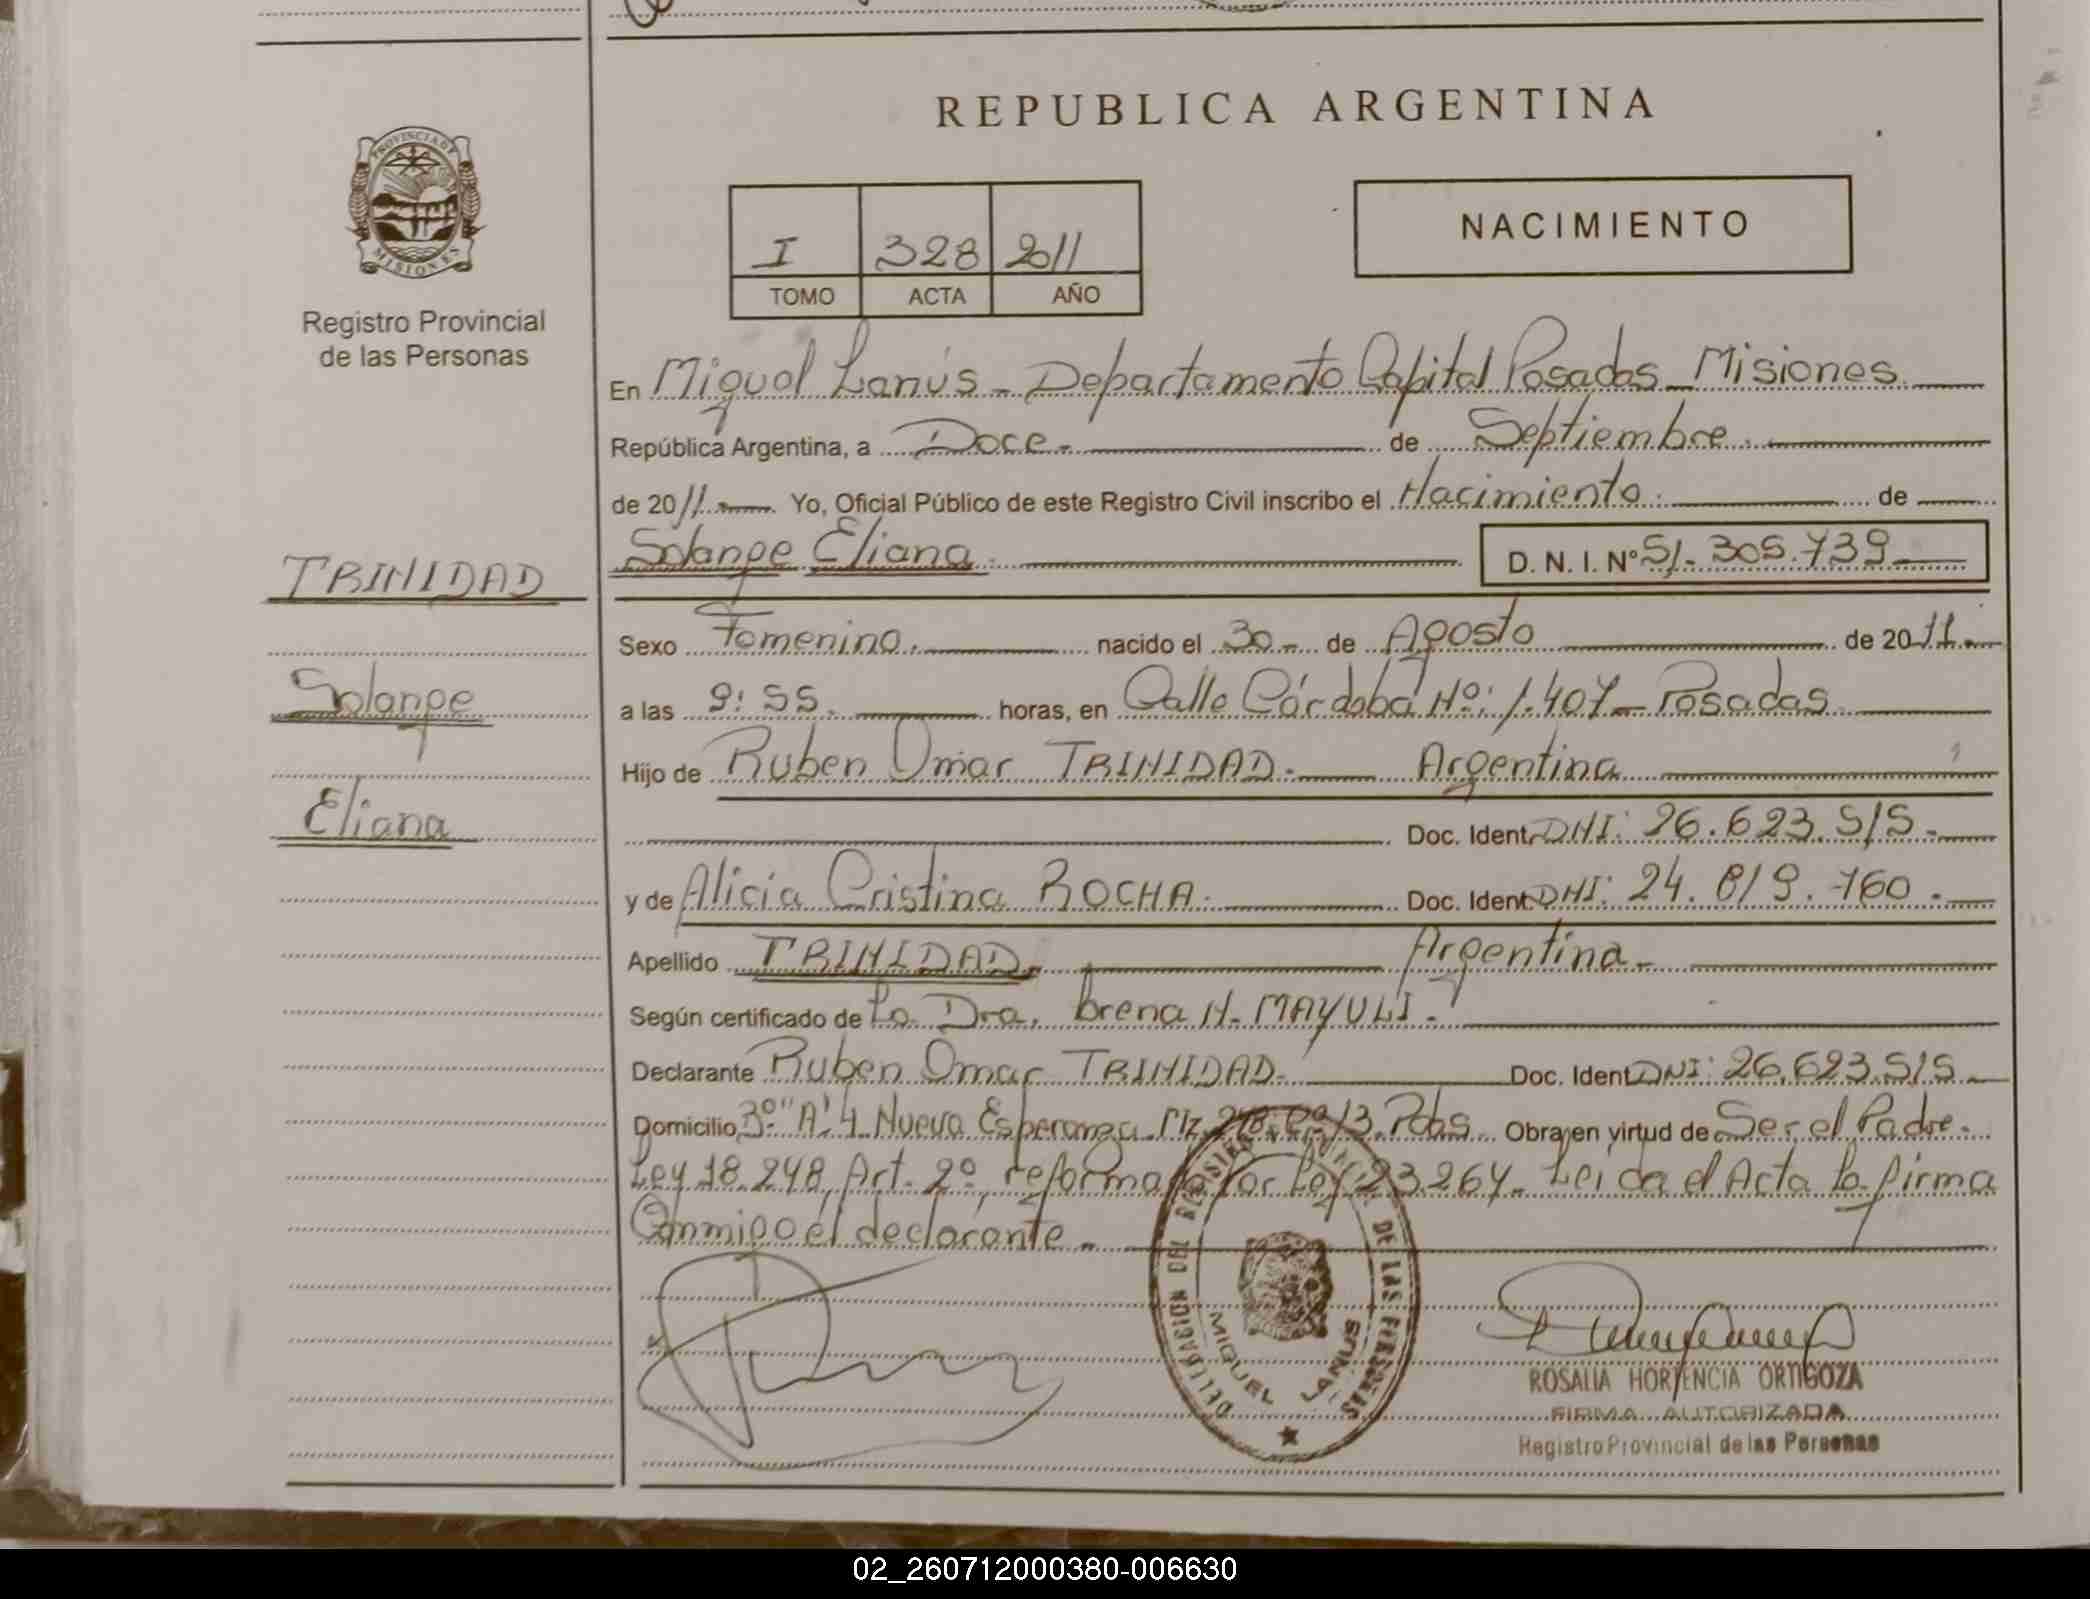 REPUBLICA ARGENTINA
PROVINCIA DE
MISIONES
Registro Provincial
de las Personas
I 328 2011
TOMO ACTA AÑO
NACIMIENTO
En Miguel Lanús - Departamento Capital Posadas - Misiones
República Argentina, a Doce - de Septiembre
de 2011 Yo, Oficial Público de este Registro Civil inscribo el Nacimiento de
Solange Eliana D. N. I. Nº 51.305.739
TRINIDAD
Sexo Femenino. nacido el 30 - de Agosto de 2011.
Solange
a las 9:55. horas, en Calle Córdoba Nº: 1.407 - Posadas
Hijo de Ruben Omar TRINIDAD. Argentina
Eliana
Doc. Ident. DNI: 26.623.515.
y de Alicia Cristina ROCHA. Doc. Ident. DNI: 24.819.760.
Apellido TRINIDAD. Argentina -
Según certificado de La Dra. Lorena N. MAYULI.
Declarante Ruben Omar TRINIDAD. Doc. Ident. DNI: 26.623.515
Domicilio 3º "A" 4 Nueva Esperanza Mz. 13. Pdas Obra en virtud de Ser el Padre.
Ley 18.248, Art. 2º, reformado por Ley 23.264. Leída el Acta la firma
Conmigo el declarante -
DELEGACION DEL REGISTRO PROVINCIAL DE LAS PERSONAS
MIGUEL LANUS
ROSALIA HORTENCIA ORTIGOZA
FIRMA AUTORIZADA
Registro Provincial de las Personas
02_260712000380-006630